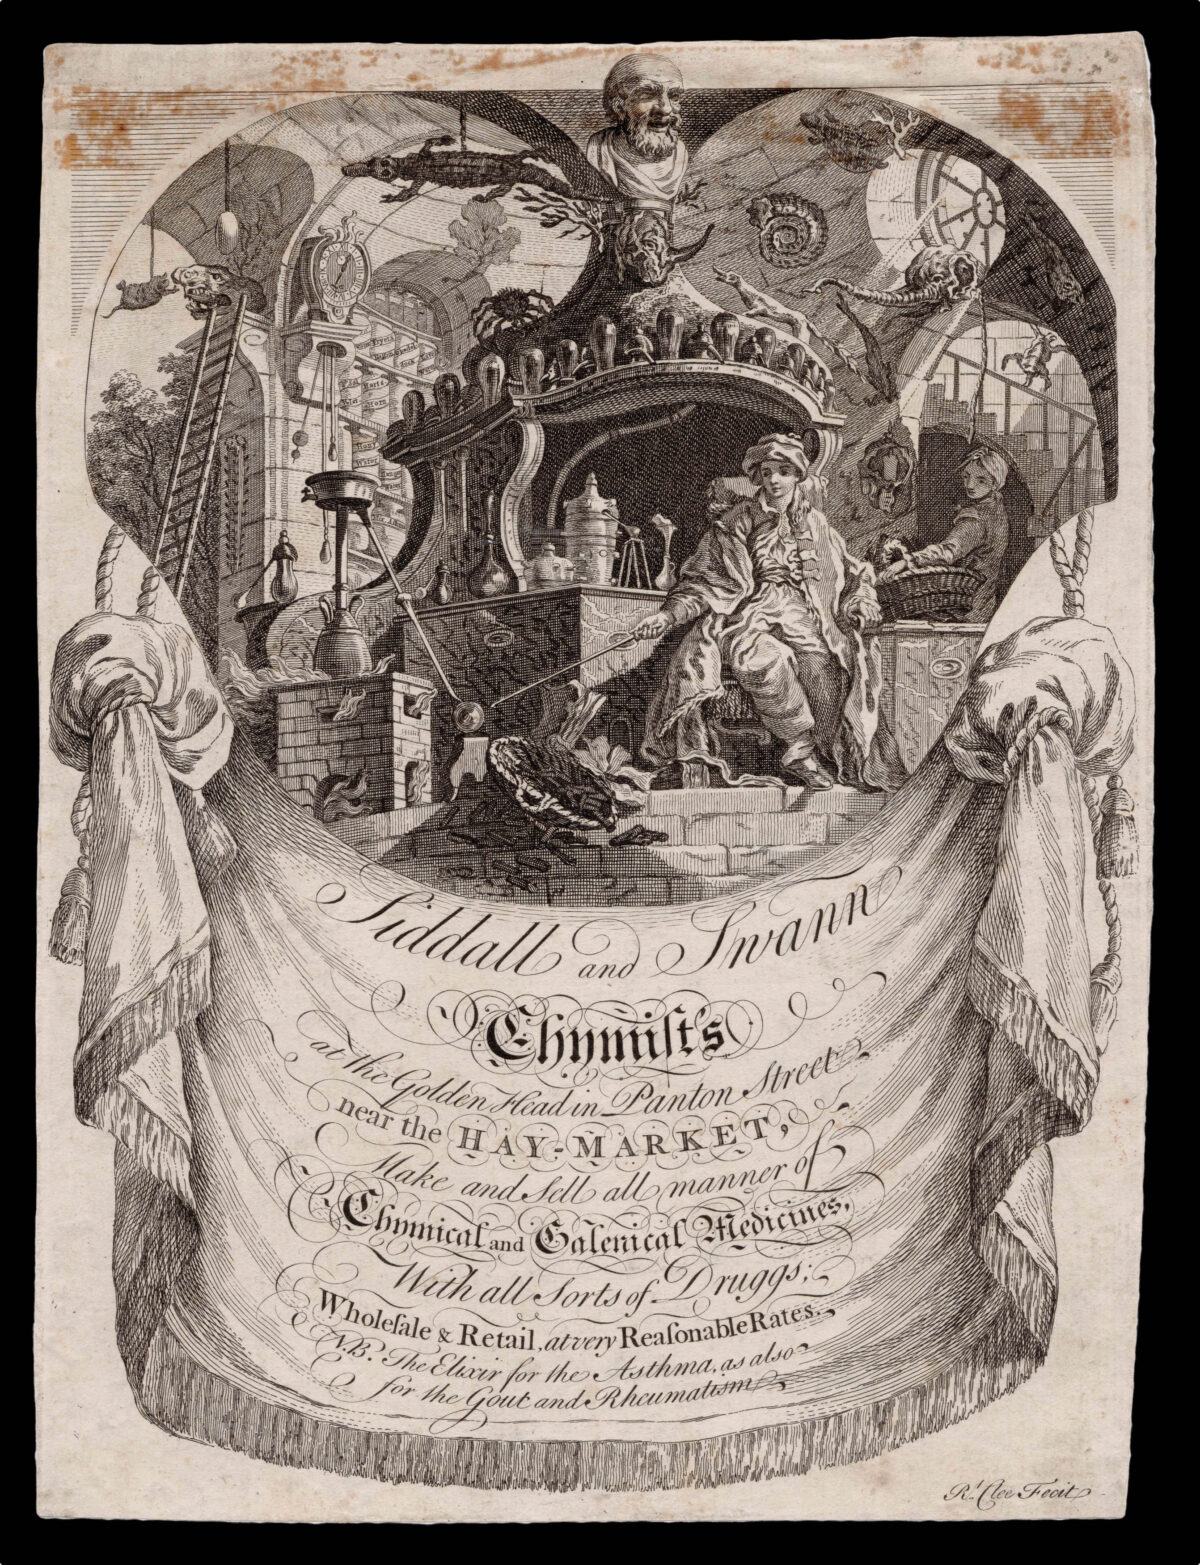 Siddall and Swann
Chymist's
at the Golden Head in Panton Street
near the HAY-MARKET,
Make and Sell all manner of
Chymical and Galenical Medicines,
With all Sorts of Druggs;
Wholeſale & Retail, at very Reaſonable Rates.
N.B. The Elixir for the Asthma, as also
for the Gout and Rheumatism
R.t Clee Fecit